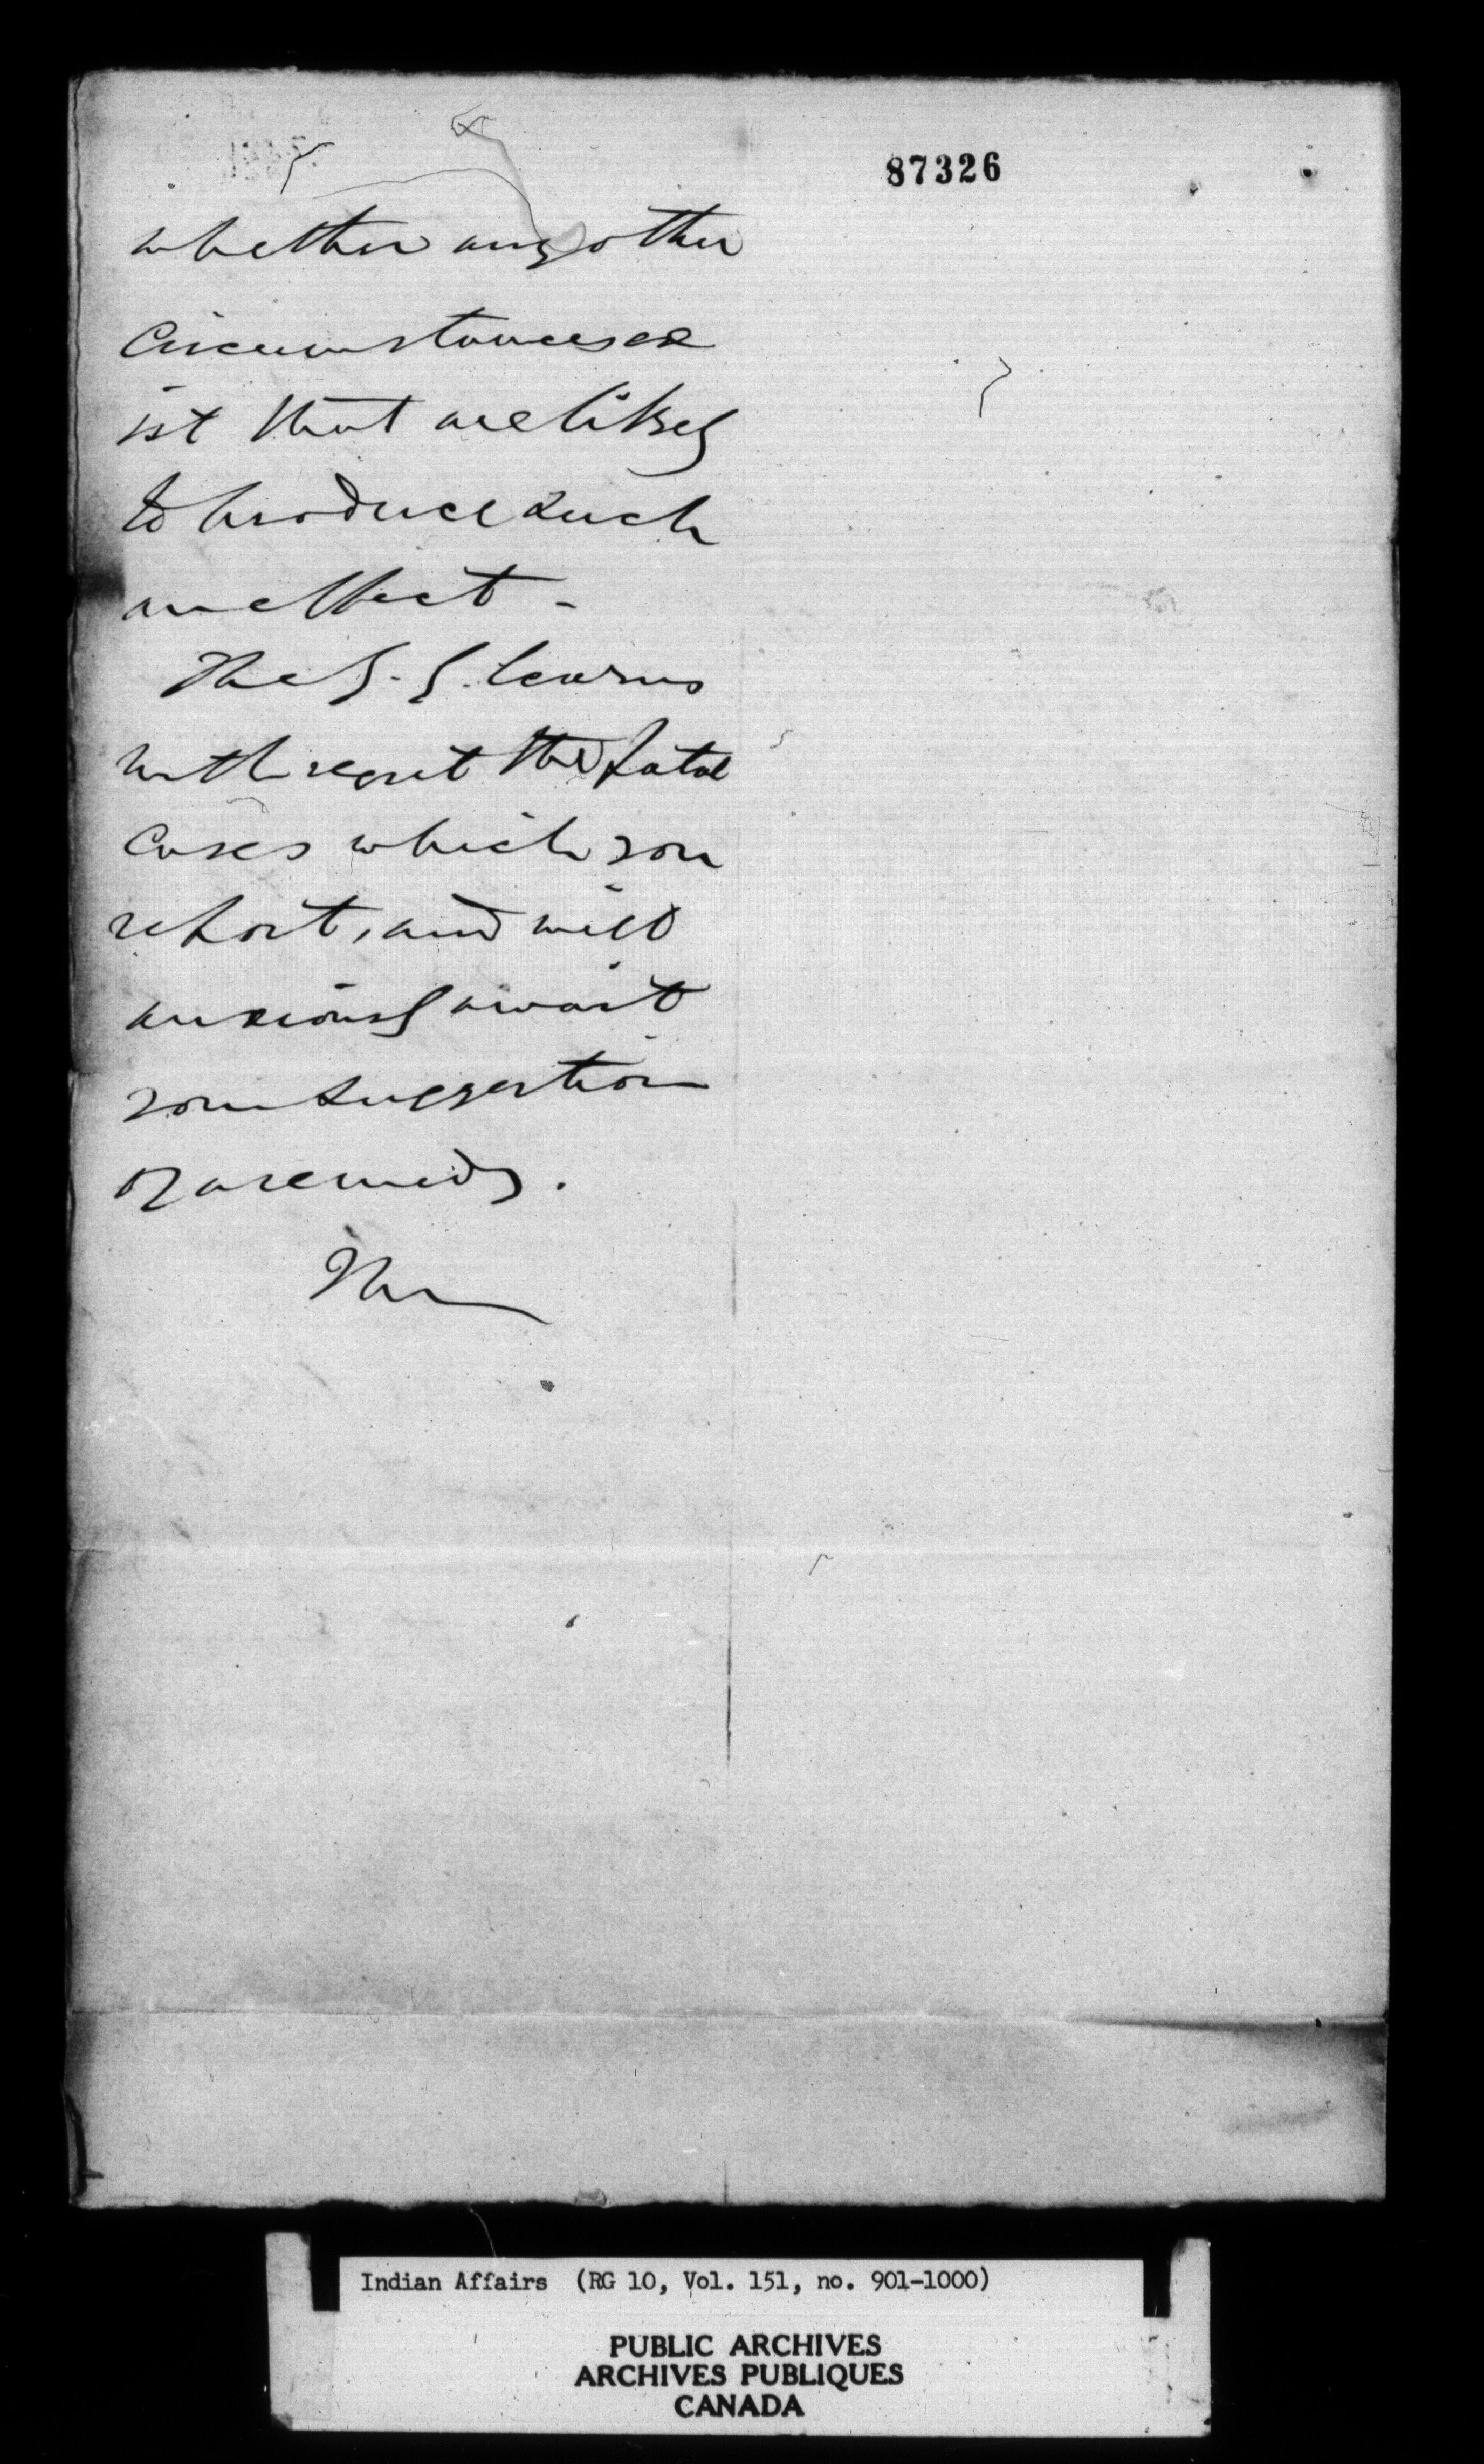 87326
whether any other
Circumstances ex
ist that are likely
to produce such
an effect -
The G. G. learns
with regret the fatal
Cases which you
report, and will
anxiously await
your suggestion
of a remedy.
Indian Affairs (RG 10, Vol. 151, no. 901-1000)
PUBLIC ARCHIVES
ARCHIVES PUBLIQUES
CANADA